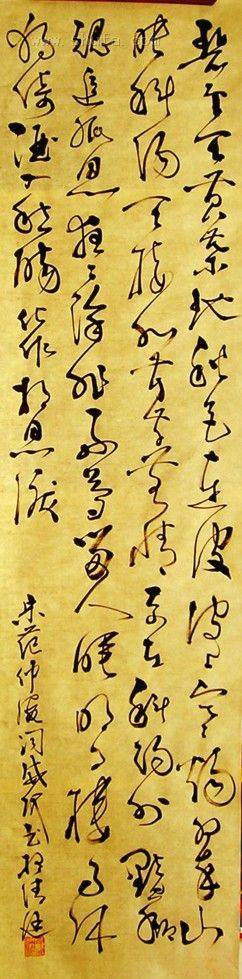 碧云天黄葉地秋色連波波上寒煙翠山
映斜陽天接水芳草無情更在斜陽外黯鄉
魂追旅思夜夜除非好夢留人睡明月樓高休
獨倚酒入愁腸化作相思淚
宋范仲淹词